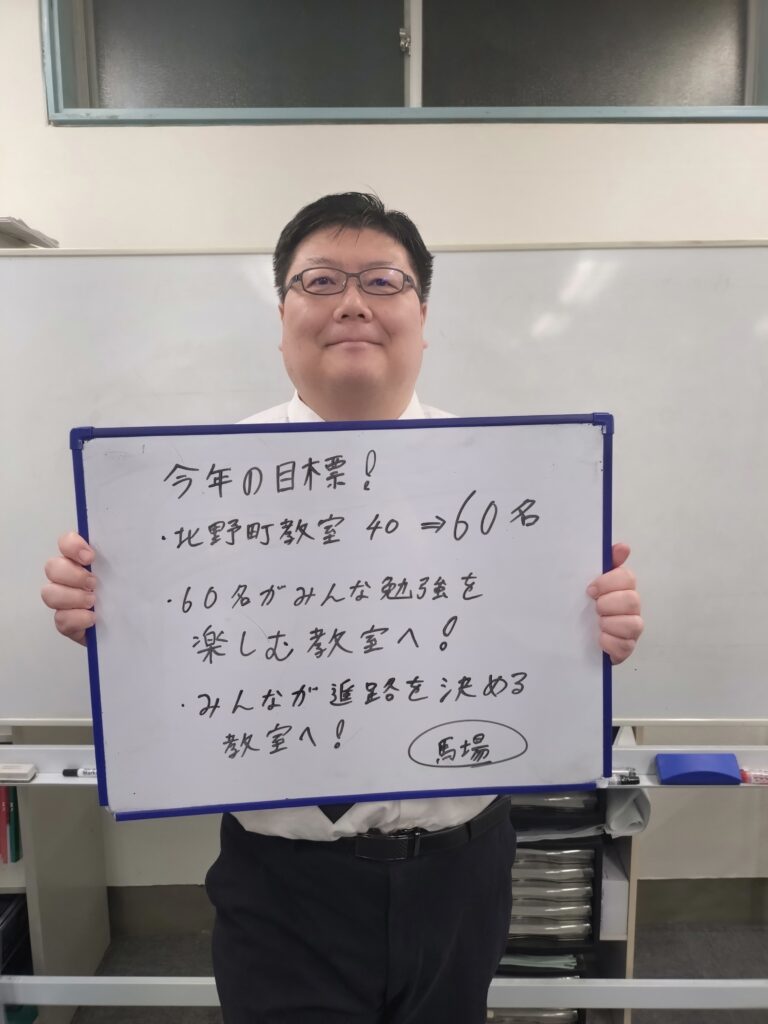 今年の目標!
・北野町教室 40 ⇒ 60名
・60名がみんな勉強を
楽しむ教室へ!
・みんなが進路を決める
教室へ!
馬場